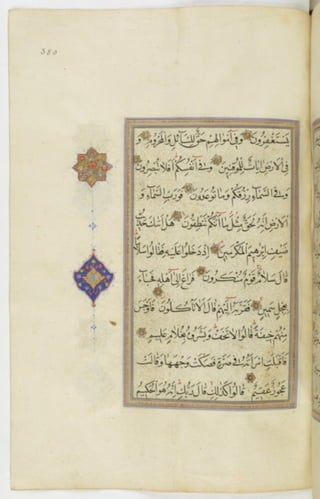 380
يَسْتَغْفِرُونَ وَفِي أَمْوَالِهِمْ حَقٌّ لِلسَّائِلِ وَالْمَحْرُومِ وَ
فِي الْأَرْضِ آيَاتٌ لِلْمُوقِنِينَ وَفِي أَنْفُسِكُمْ أَفَلَا تُبْصِرُونَ
وَفِي السَّمَاءِ رِزْقُكُمْ وَمَا تُوعَدُونَ فَوَرَبِّ السَّمَاءِ وَ
الْأَرْضِ إِنَّهُ لَحَقٌّ مِثْلَ مَا أَنَّكُمْ تَنْطِقُونَ هَلْ أَتٰيكَ حَدِيثُ
ضَيْفِ إِبْرٰهِيمَ الْمُكْرَمِينَ إِذْ دَخَلُوا عَلَيْهِ فَقَالُوا سَلَامًا
قَالَ سَلَامٌ قَوْمٌ مُنْكَرُونَ فَرَاغَ إِلَى أَهْلِهِ فَجَاءَ
بِعِجْلٍ سَمِينٍ فَقَرَّبَهُ إِلَيْهِمْ قَالَ أَلَا تَأْكُلُونَ فَأَوْجَسَ
مِنْهُمْ خِيفَةً قَالُوا لَا تَخَفْ وَبَشَّرُوهُ بِغُلَامٍ عَلِيمٍ
فَأَقْبَلَتِ امْرَأَتُهُ فِي صَرَّةٍ فَصَكَّتْ وَجْهَهَا وَقَالَتْ
عَجُوزٌ عَقِيمٌ قَالُوا كَذٰلِكِ قَالَ رَبُّكِ إِنَّهُ هُوَ الْحَكِيمُ